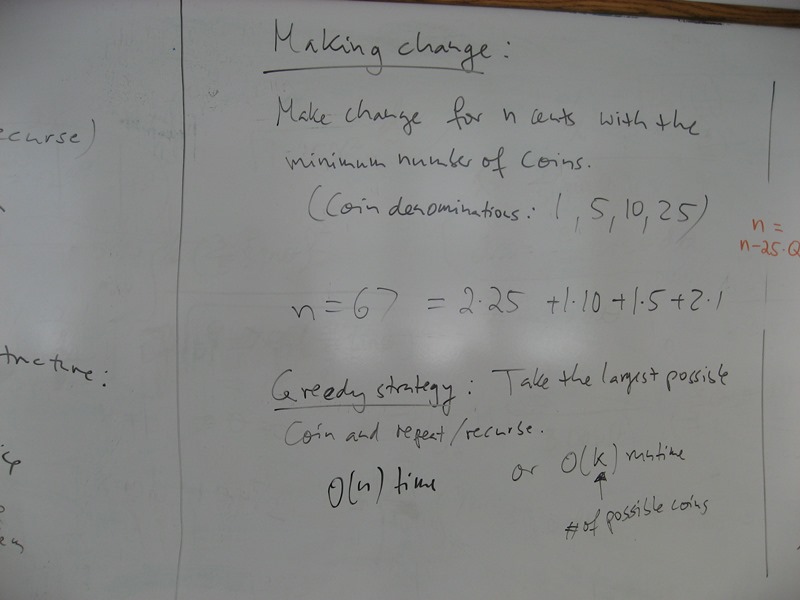 Making change:
Make change for n cents with the
minimum number of coins.
(Coin denominations: 1, 5, 10, 25)
n = 67 = 2·25 + 1·10 + 1·5 + 2·1
Greedy strategy: Take the largest possible
coin and repeat/recurse.
O(n) time or O(k) runtime
# of possible coins
ecurse)
tructure:
n =
n-25·Q